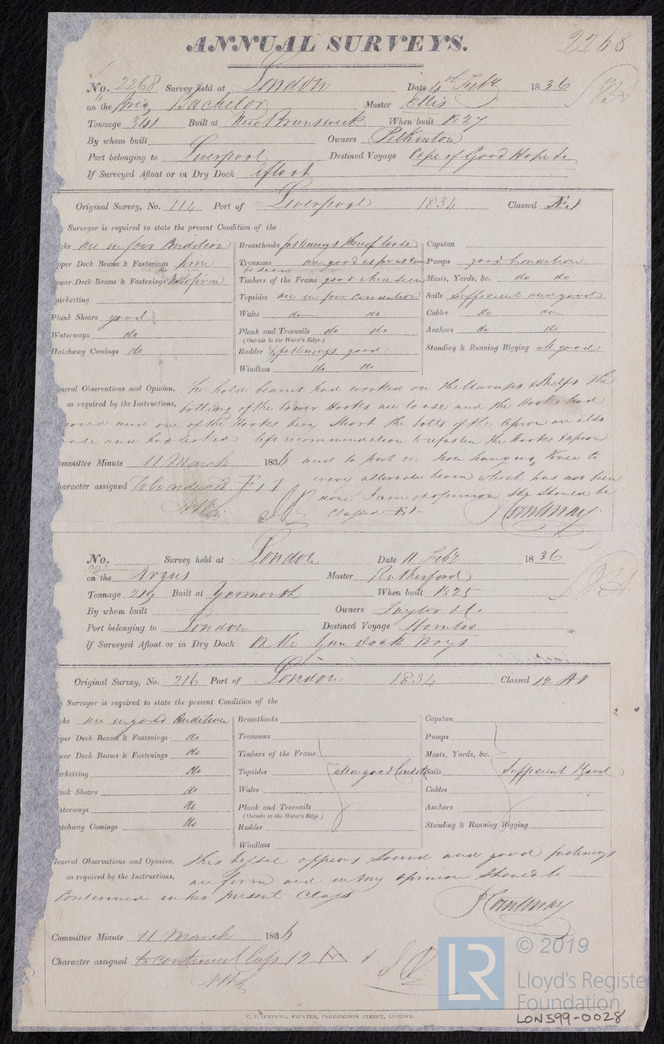 2268
ANNUAL SURVEYS.
No. 2268 Survey held at London Date 4th Feby 1836
on the Brig Bachelor Master Ellis
Tonnage 341 Built at New Brunswick When built 1827
By whom built Owners Pilkinton
Port belonging to Liverpool Destined Voyage Cape of Good Hope
If Surveyed Afloat or in Dry Dock afloat
Original Survey, No. 114 Port of Liverpool 1834 Classed Æ1
Surveyor is required to state the present Condition of the
ks are in fair Condition Breasthooks fastenings some of loose Capstan
per Deck Beams & Fastenings firm Transoms are good as far as can be seen Pumps good Condition
ower Deck Beams & Fastenings not so firm Timbers of the Frame good when seen Masts, Yards, &c. do do
pirketting Topsides are in fair condition Sails sufficient and good
Plank Shears good Wales do do Cables do do
Waterways do Plank and Treenails do do Anchors do do
(Outside to the Water's Edge.)
Hatchway Comings do Rudder & fastenings good Standing & Running Rigging all good
Windlass do do
eneral Observations and Opinion, The hold beams had worked on the Clamps & Shelfs The
as required by the Instructions, bolts of the lower Hooks are loose and the Hooks had
and one of the Hooks being Short the bolts of the Apron are also
recommendation to refasten the Hooks & Apron
ommittee Minute 11 March 1836 and to put in Iron hanging Knee to
every alternate beam which has not been
haracter assigned To be reduced Æ1 done I am of opinion she should be
Classed Æ1 Courtenay
No. Survey held at London Date 11 Feby 1836
on the Argus Master Rutherford
Tonnage 219 Built at Yarmouth When built 1825
By whom built Owners Taylor & Co
Port belonging to London Destined Voyage
If Surveyed Afloat or in Dry Dock In the Gun Dock
Original Survey, No. 216 Port of London 1834 Classed 12 A1
Surveyor is required to state the present Condition of the
ks are in good Condition Breasthooks Capstan
per Deck Beams & Fastenings do Transoms Pumps
wer Deck Beams & Fastenings do Timbers of the Frame Masts, Yards, &c.
irketting do Topsides all in good Condition Sails Sufficient & good
ank Shears do Wales Cables
aterways do Plank and Treenails Anchors
(Outside to the Water's Edge.)
atchway Comings do Rudder Standing & Running Rigging
Windlass
eneral Observations and Opinion, This Vessel appears Sound and good fastenings
as required by the Instructions, are firm and in my opinion should be
Continued in her present Class Courtenay
Committee Minute 11 March 1836
Character assigned to continue Class 12 A1
© 2019
LR
Lloyd's Register
Foundation
LON599-0028
C. F. SEYFANG, PRINTER, FARRINGDON STREET, LONDON.